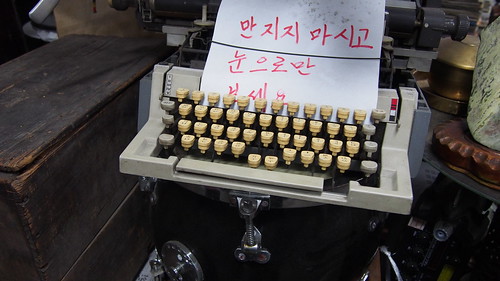 만지지 마시고
눈으로만
보세요